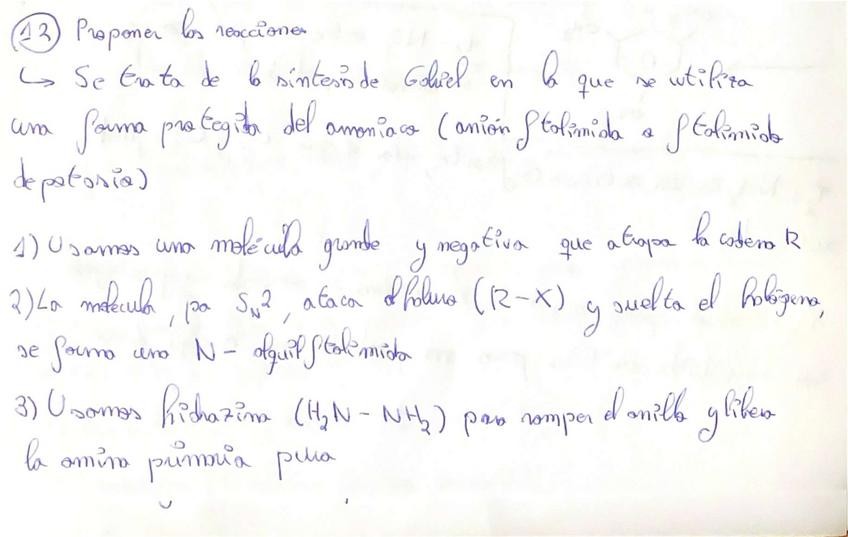 (13) Proponer las reacciones
↳ Se trata de la síntesis de Gabriel en la que se utiliza
una forma protegida del amoniaco (anión ftalimida o ftalimida
de potasio)
1) Usamos una molécula grande y negativa que atrapa la cadena R
2) La molécula, por SN2, ataca al haluro (R-X) y suelta el halógeno,
se forma una N-alquilftalimida
3) Usamos hidrazina (H2N-NH2) para romper el anillo y libera
la amina primaria pura